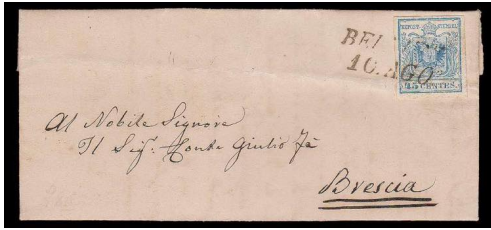 10.AGO
45 CENTES.
Al Nobile Signore
Il Sigʳ Conte Giulio Fà
Brescia